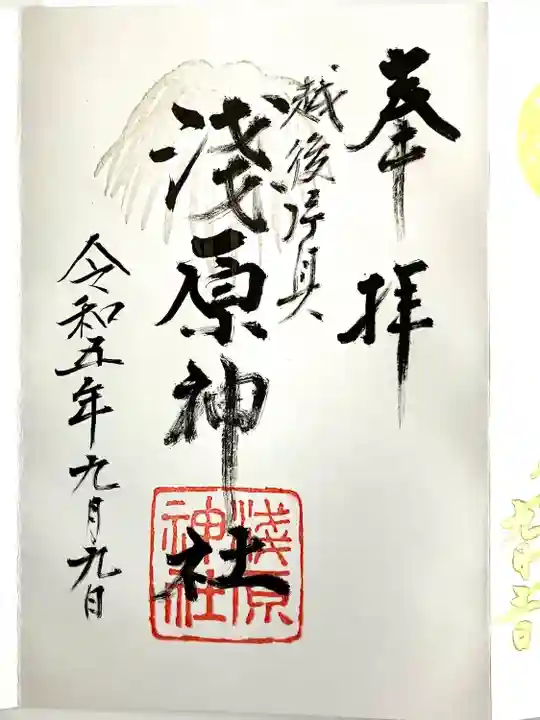 奉拝
越後片貝
淺原神社
浅原
神社
令和五年九月九日